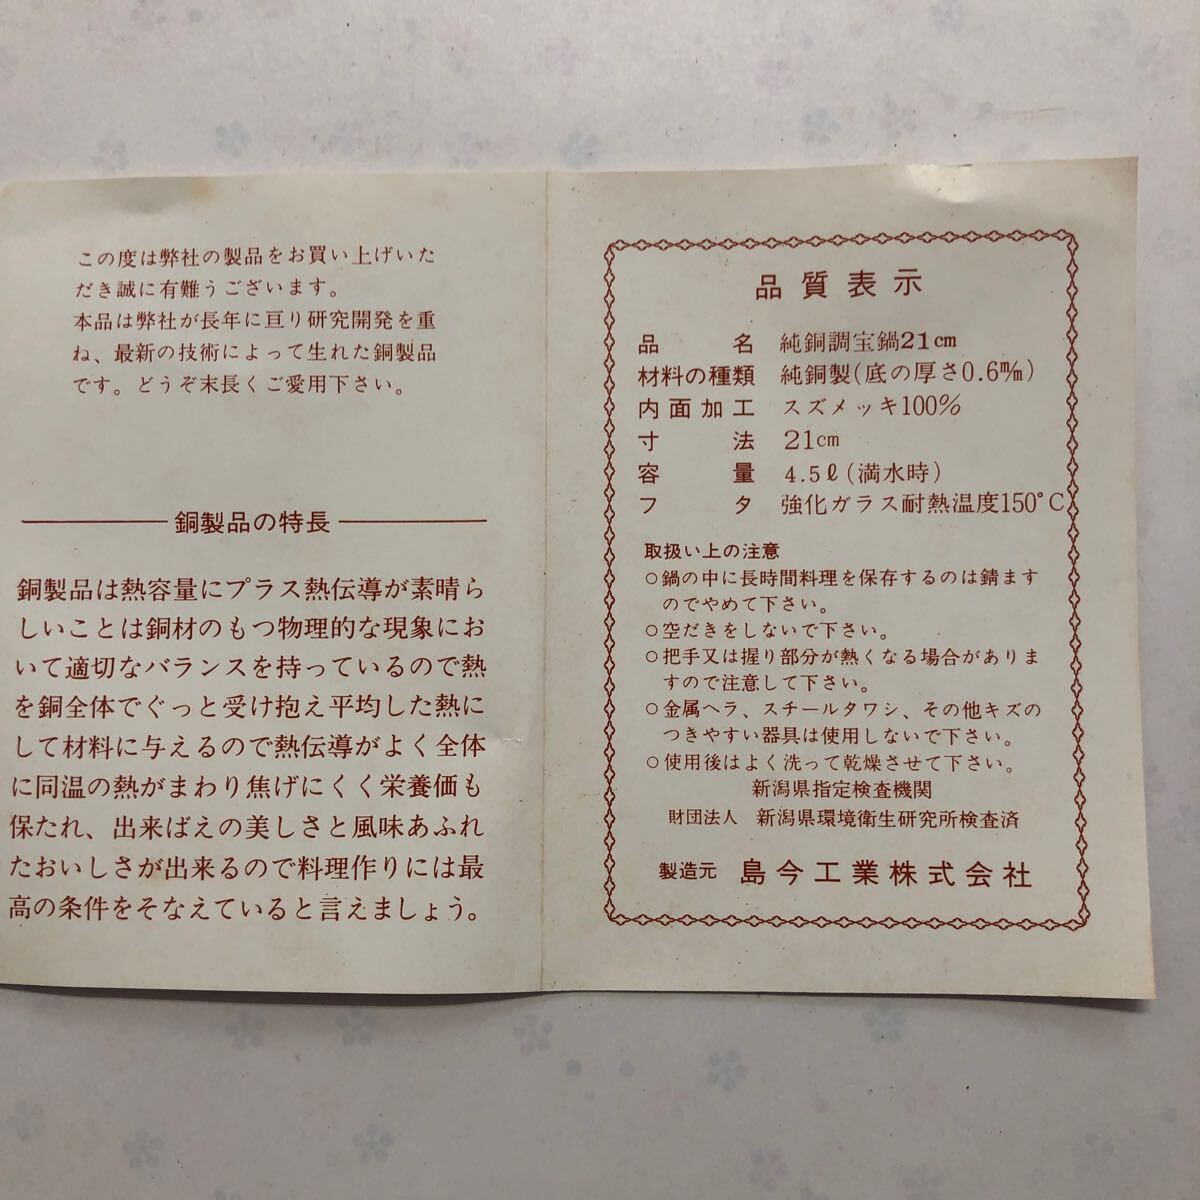 この度は弊社の製品をお買い上げいた
だき誠に有難うございます。
本品は弊社が長年に亘り研究開発を重
ね、最新の技術によって生れた銅製品
です。どうぞ末長くご愛用下さい。
銅製品の特長
銅製品は熱容量にプラス熱伝導が素晴ら
しいことは銅材のもつ物理的な現象にお
いて適切なバランスを持っているので熱
を銅全体でぐっと受け抱え平均した熱に
して材料に与えるので熱伝導がよく全体
に同温の熱がまわり焦げにくく栄養価も
保たれ、出来ばえの美しさと風味あふれ
たおいしさが出来るので料理作りには最
高の条件をそなえていると言えましょう。
品質表示
品名 純銅調宝鍋21cm
材料の種類 純銅製(底の厚さ0.6m/m)
内面加工 スズメッキ100%
寸法 21cm
容量 4.5ℓ(満水時)
フタ 強化ガラス耐熱温度150°C
取扱い上の注意
○鍋の中に長時間料理を保存するのは錆ます
のでやめて下さい。
○空だきをしないで下さい。
○把手又は握り部分が熱くなる場合がありま
すので注意して下さい。
○金属ヘラ、スチールタワシ、その他キズの
つきやすい器具は使用しないで下さい。
○使用後はよく洗って乾燥させて下さい。
新潟県指定検査機関
財団法人 新潟県環境衛生研究所検査済
製造元 島今工業株式会社